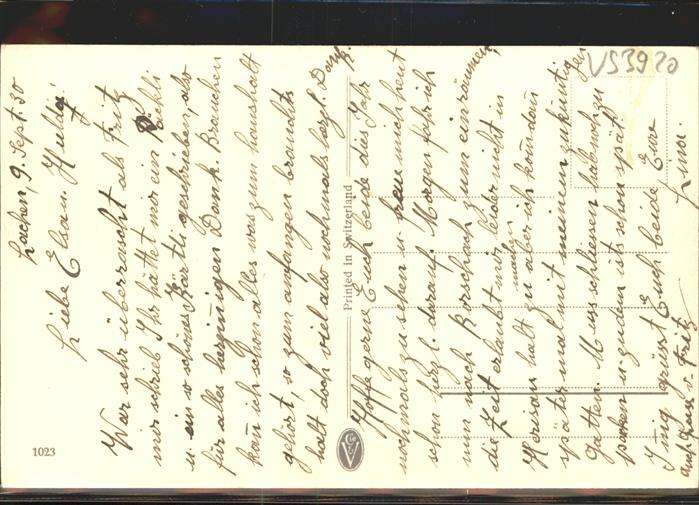 Lachen, 9. Sept. 50
Liebe Ehan. Hubig!
War sehr überrascht als Fritz
mir schrieb Ihr hättet mir ein Päckli
u ein so schönes Kärtli geschrieben, also
für alles herzinnigen Dank. Brauchen
kann ich schon alles was zum haushalt
ghört, so zum anfangen brauchts
halt doch viel also nochmals herzl. Dank
Hoffe gerne Euch beide des Jahr
nochmals zu sehen u freu mich heut
schon herzl. darauf. Morgen fahr ich
nun nach Rorschach zum einräumen,
die Zeit erlaubt mir leider nicht in
Herisau halt zu machen aber ich komm dann
später mal mit meinem zukünftigen
Gatten. Muss schliessen hab noch zu
packen u zudem ists schon spät.
Innig grüsst Euch beide Eure
Luna.
auch Gruss v. Fritz
Printed in Switzerland
1023
VS3920